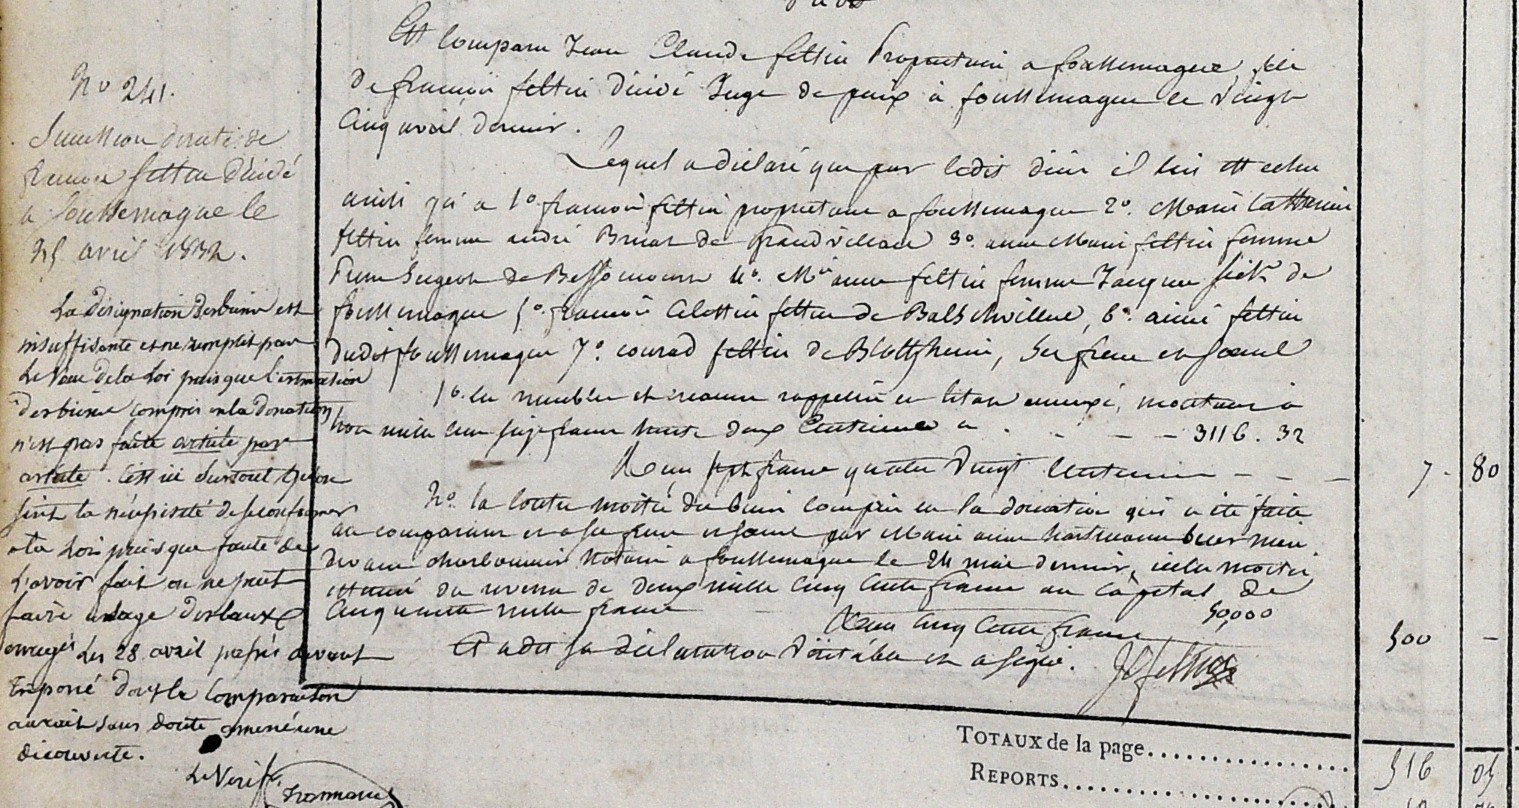 N° 241.
Succession directe de
françois feltin décédé
a foussemagne le
25 avril 1832.
La désignation des biens est
insuffisante et ne remplit pas
le vœu de la loi puisque l'estimation
des biens compris en la donation
n'est pas faite article par
article. C'est ici surtout qu'on
sent la nécessité de se conformer
a la loi puisque faute de
l'avoir fait on ne peut
faire usage des baux
Les 28 avril
dont la comparaison
aurait sans doute amené une
découverte.
Le Verif.
Est Comparu Jean Claude feltin Propriétaire a foussemagne, fils
De françois feltin Décédé Juge de paix à foussemagne le vingt
Cinq avril dernier.
Lequel a déclaré que par ledit décès il lui est echu
ainsi qu'a 1° françois feltin propriétaire a foussemagne 2°. Marie Catherine
feltin femme andré Briat de Grandvillars 3°. anne Marie feltin femme
Pierre de Bessoncourt 4°. Mie anne feltin femme Jacques de
foussemagne 5°. françois Célestin feltin de Balschwiller, 6°. aimé feltin
dudit foussemagne 7°. conrad feltin de Blotzheim, ses freres et sœurs
1°. les meubles et creances rappellés en l'état annexé, montant a
trois mille cent seize francs trente deux Centimes a . - - - 3116 . 32
Reçu sept francs quatre vingt Centimes - - - 7 - 80
2°. la moitié des biens compris en la donation qui a été faite
au comparant et a ses freres et sœurs par Marie anne hartmann leur mère
devant charbonnier Notaire a foussemagne le 24 mai dernier, icelle moitié
estimée du revenu de deux mille Cinq Cents francs au Capital de
Cinquante mille francs 50,000
Reçu Cinq Cents francs 500 -
Et a dit sa déclaration Véritable et a signé. JC feltin
TOTAUX de la page............... 516 05
REPORTS...............